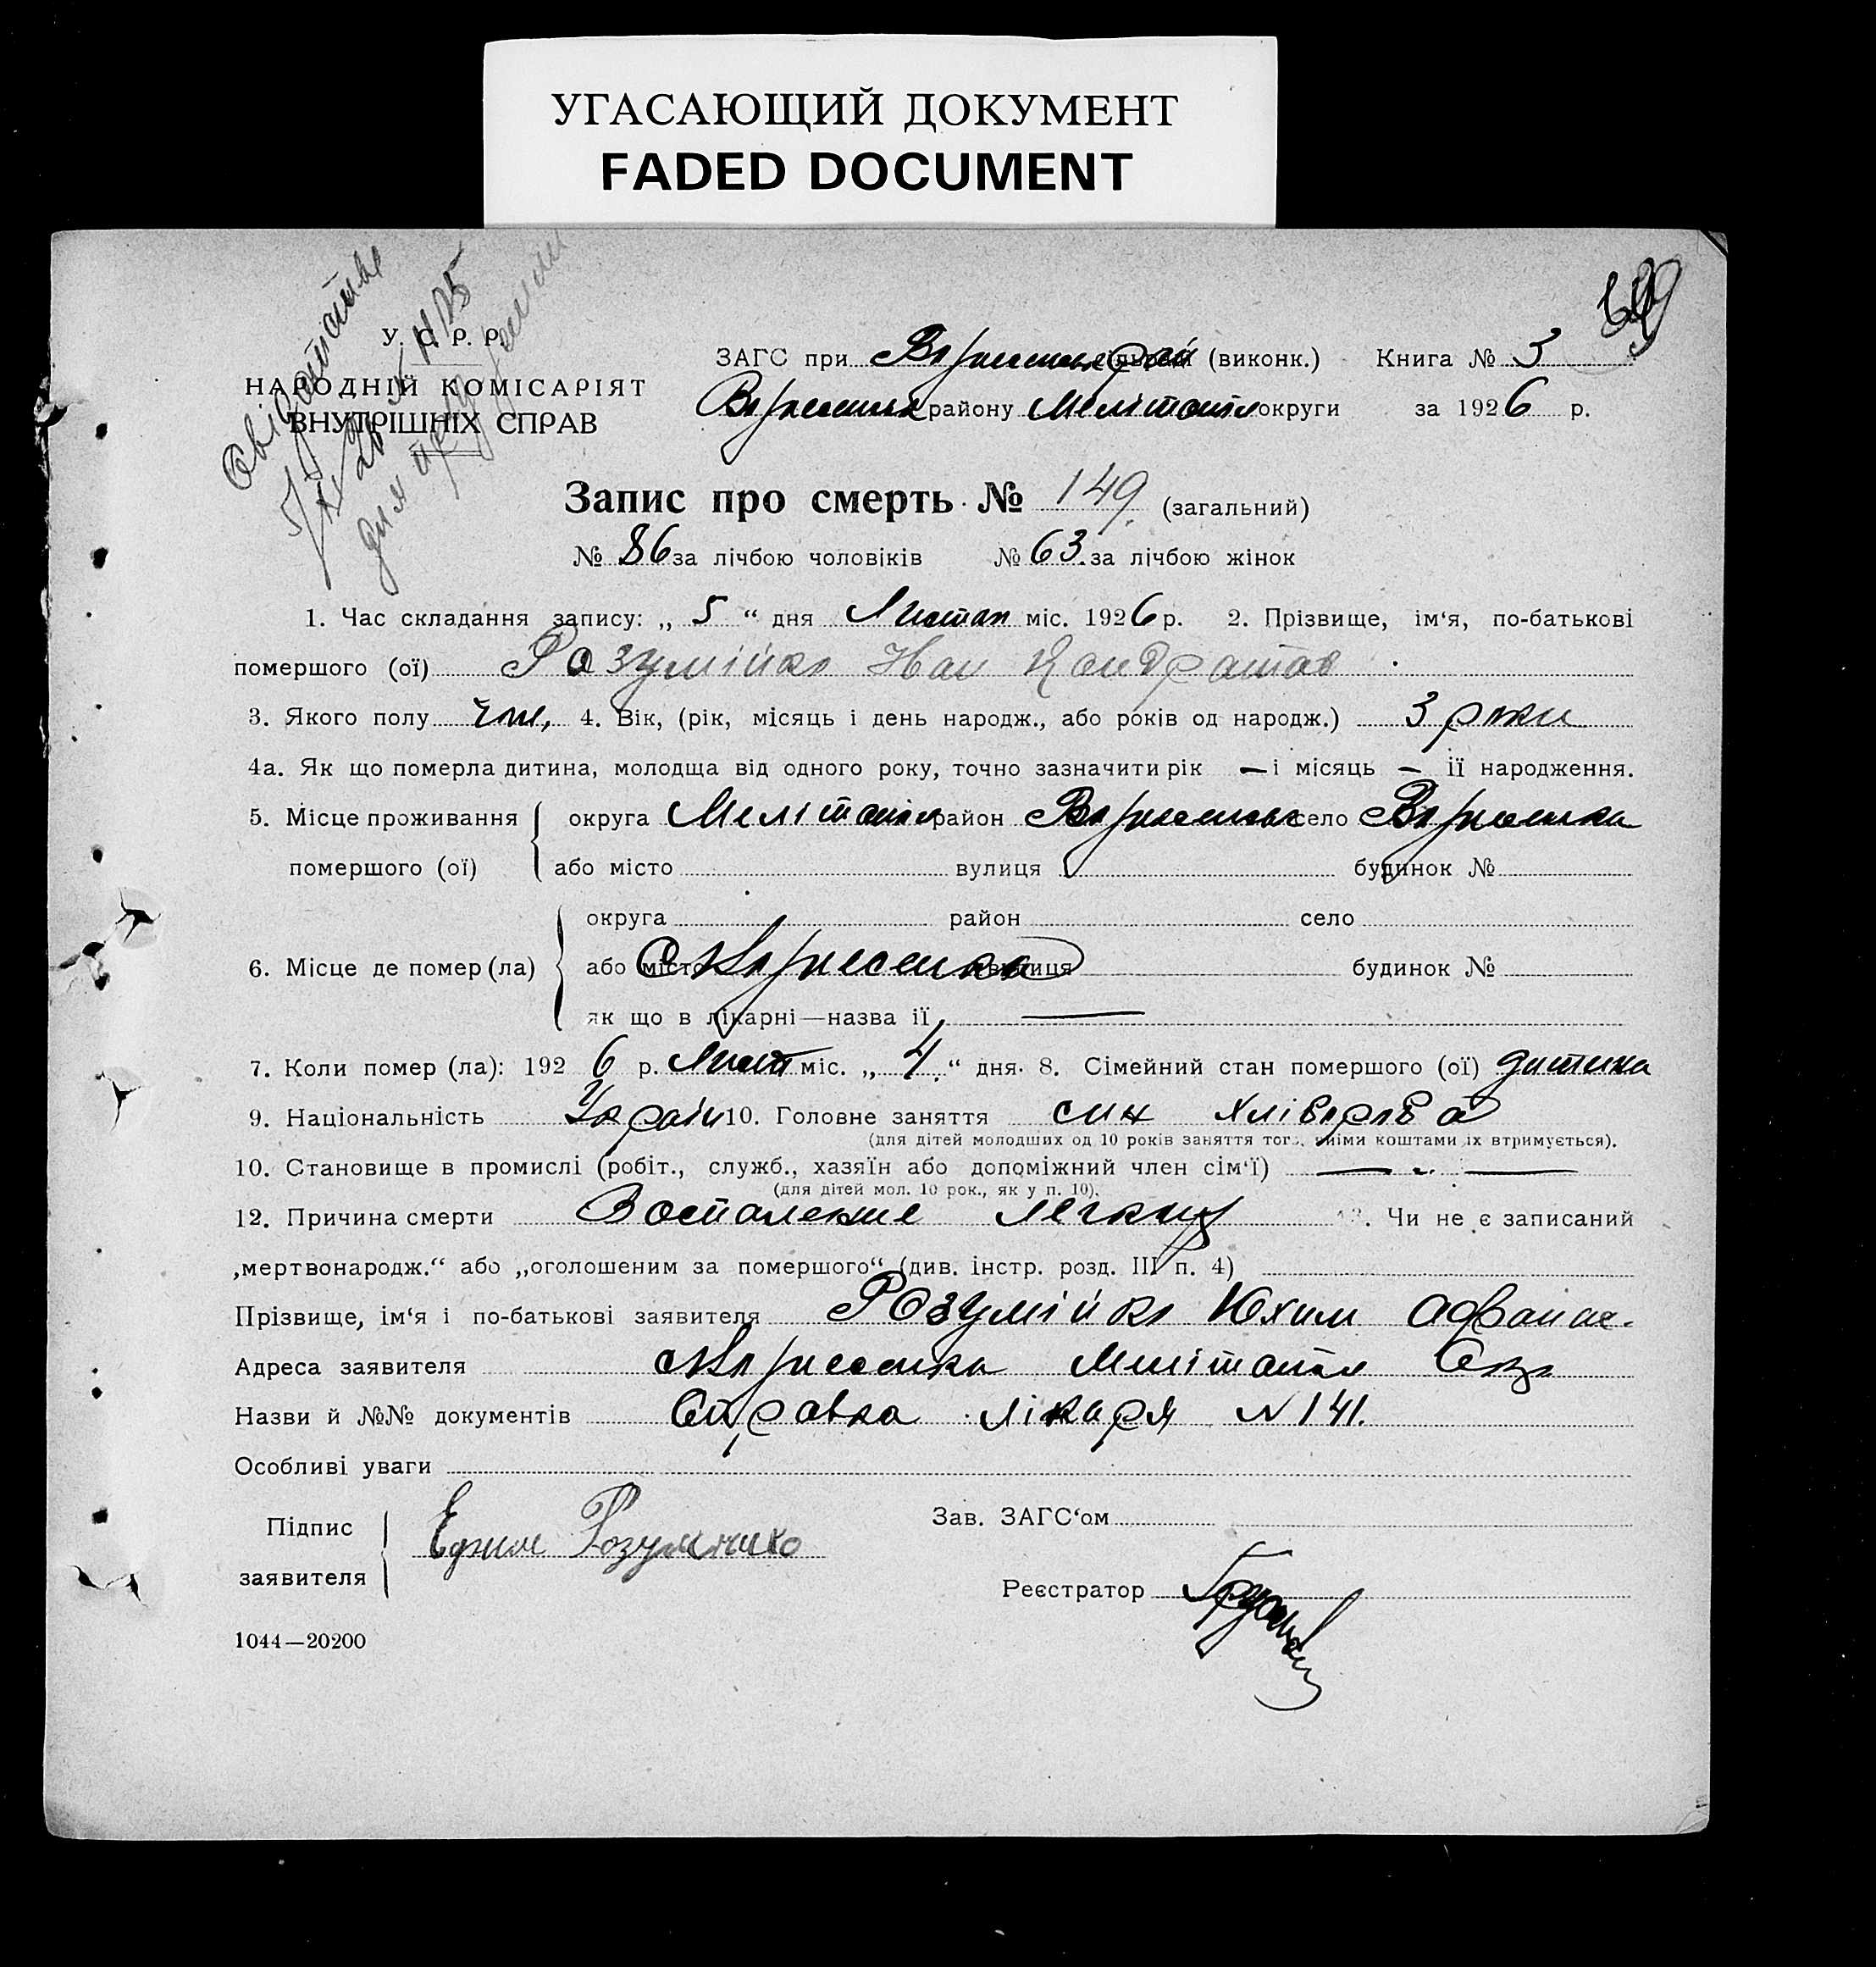 УГАСАЮЩИЙ ДОКУМЕНТ
FADED DOCUMENT
У. С. Р. Р.
НАРОДНІЙ КОМІСАРІЯТ
ВНУТРІШНІХ СПРАВ
ЗАГС при (виконк.) Книга № 3
району Мелітопіл округи за 1926 р.
Запис про смерть № 149 (загальний)
№ 86 за лічбою чоловіків № 63 за лічбою жінок
1. Час складання запису: „ 5 “ дня Листоп міс. 1926 р. 2. Прізвище, ім‘я, по-батькові
помершого (ої) Розумійко Іван Кондратов
3. Якого полу чол, 4. Вік, (рік, місяць і день народж., або років од народж.) 3 роки
4а. Як що померла дитина, молодща від одного року, точно зазначити рік — і місяць — ії народження.
5. Місце проживання округа Мелітопіл район Вознесенськ село Вознесенка
помершого (ої) або місто вулиця будинок №
округа район село
6. Місце де помер (ла) або місто с Вознесенка вулиця будинок №
як що в лікарні—назва ії —
7. Коли помер (ла): 1926 р. Лист міс. „ 4 “ дня. 8. Сімейний стан помершого (ої) дитина
9. Національність Украін 10. Головне заняття син хлібороба
(для дітей молодших од 10 років заняття того, чиїми коштами їх втримується).
10. Становище в промислі (робіт., служб., хазяїн або допоміжний член сім‘ї) — „ —
(для дітей мол. 10 рок., як у п. 10).
12. Причина смерти Воспаление легких 13. Чи не є записаний
„мертвонародж.“ або „оголошеним за помершого“ (див. інстр. розд. III п. 4)
Прізвище, ім‘я і по-батькові заявителя Розумійко Юхим Афанас.
Адреса заявителя с Вознесенка Мелітопіл Окр
Назви й №№ документів Справка лікаря N 141.
Особливі уваги
Підпис заявителя Ефим Розумнико
Зав. ЗАГС‘ом
Реєстратор
1044—20200